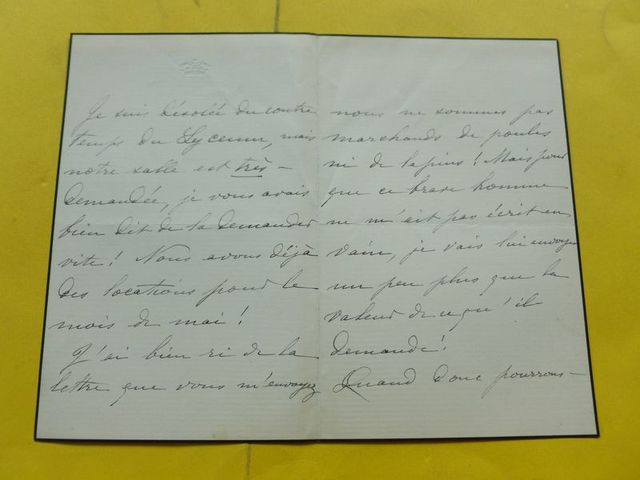 Je suis désolée du contre
temps du Lyceum, mais
notre salle est très-
demandée, je vous avais
bien dit de la demander
vite! Nous avons déjà
des locations pour le
mois de mai!
J'ai bien ri de la
lettre que vous m'envoyez
nous ne sommes pas
marchands de poules
ni de lapins! Mais pour
que ce brave homme
ne m'ait pas écrit en
vain, je vais lui envoyer
un peu plus que la
valeur de ce qu'il
demande!
Quand donc pourrons-